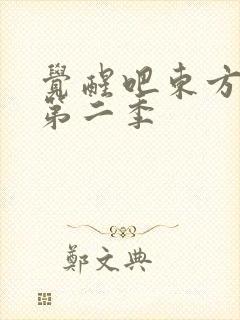 覺醒吧東方
第二季
鄭文典